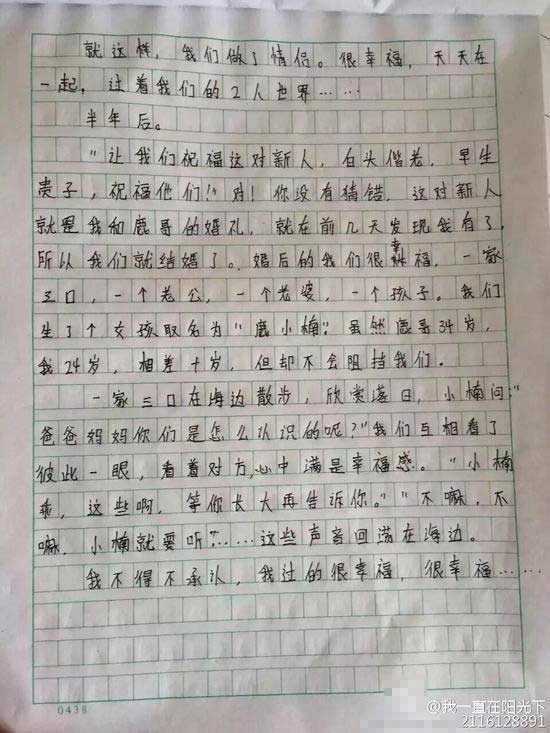 就这样，我们做了情侣。很幸福，天天在
一起，过着我们的2人世界……
半年后。
“让我们祝福这对新人，白头偕老，早生
贵子，祝福他们！”对！你没有猜错，这对新人
就是我和鹿哥的婚礼，就在前几天发现我有了，
所以我们就结婚了。婚后的我们很幸福，一家
三口，一个老公，一个老婆，一个孩子。我们
生了个女孩取名为“鹿小楠”虽然鹿哥34岁，
我24岁，相差十岁，但却不会阻挡我们．
一家三口在海边散步，欣赏落日，小楠问：“
爸爸妈妈你们是怎么认识的呢？”我们互相看了
彼此一眼，看着对方，心中满是幸福感。“小楠
乖，这些啊，等你长大再告诉你。”“不嘛，不
嘛，小楠就要听”……这些声音回荡在海边。
我不得不承认，我过的很幸福，很幸福……
0438
@我一直在阳光下
2116128891